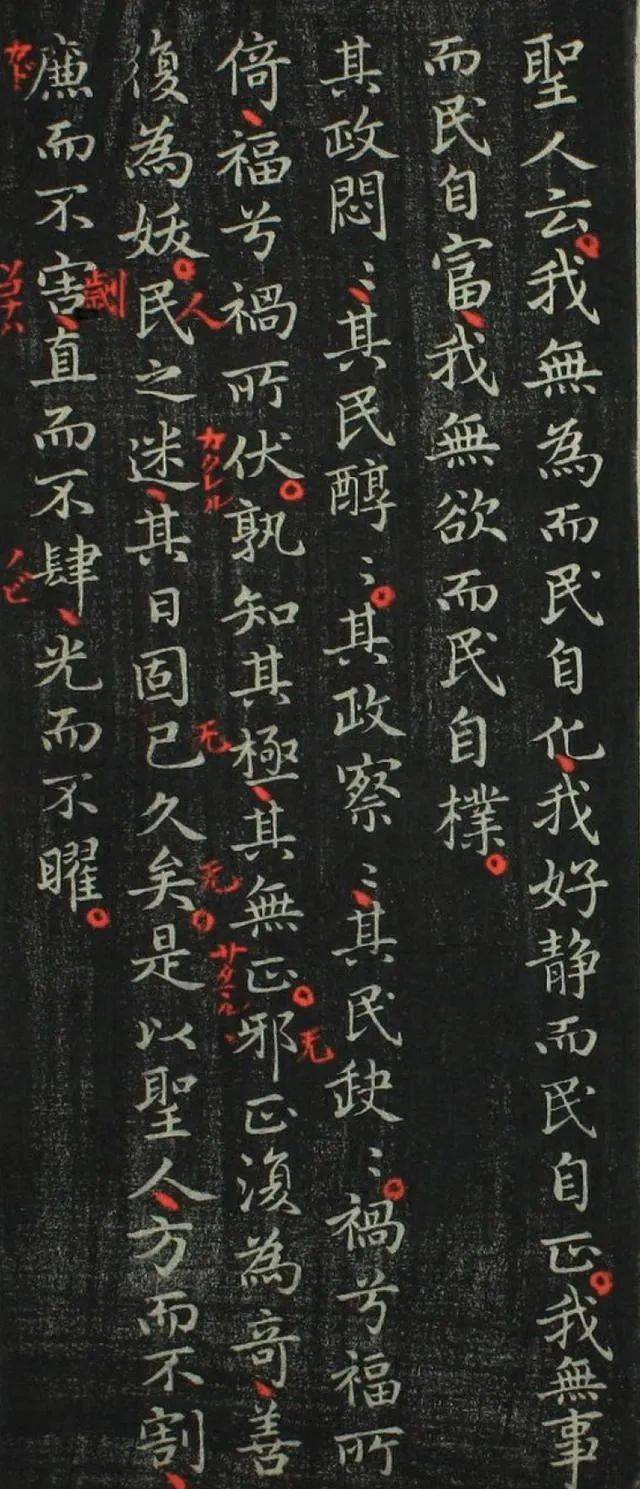 聖人云。我無為而民自化、我好静而民自正。我無事
而民自富、我無欲而民自樸。
其政悶〻、其民醇〻。其政察〻、其民缺〻。禍兮福所
无
倚、福兮禍所伏。孰知其極、其無正。邪正復為奇、善
人
カクレル
无
无
復為妖。民之迷、其日固已久矣。是以聖人、方而不割、
劌
廉而不害、直而不肆、光而不曜。
カド
ノビ